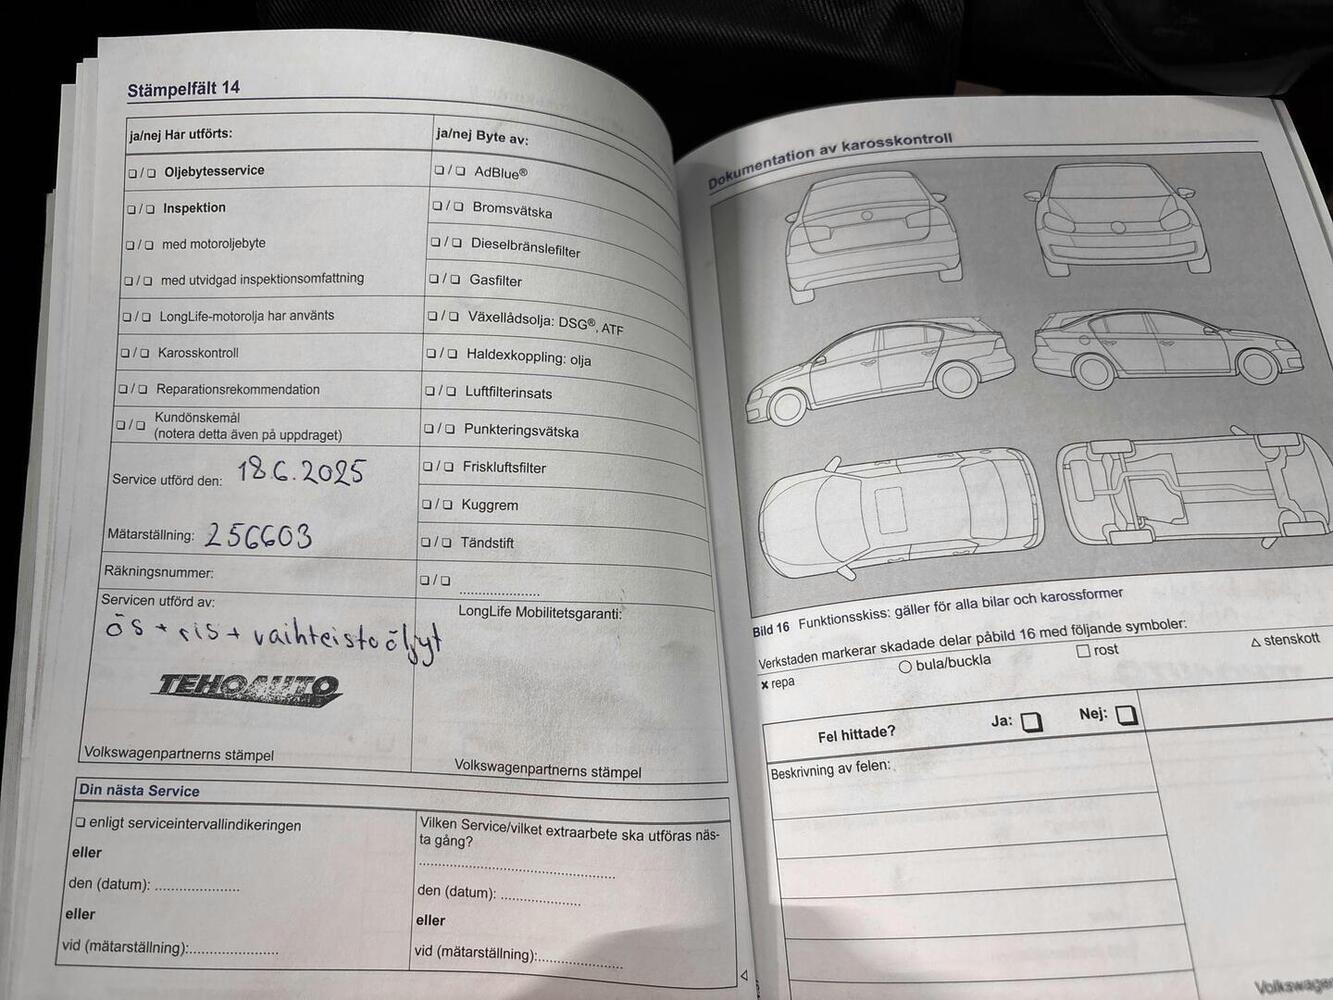 Stämpelfält 14
ja/nej Har utförts:
❏ / ❏ Oljebytesservice
❏ / ❏ Inspektion
❏ / ❏ med motoroljebyte
❏ / ❏ med utvidgad inspektionsomfattning
❏ / ❏ LongLife-motorolja har använts
❏ / ❏ Karosskontroll
❏ / ❏ Reparationsrekommendation
❏ / ❏ Kundönskemål
(notera detta även på uppdraget)
Service utförd den: 18.6.2025
Mätarställning: 256603
Räkningsnummer:
Servicen utförd av:
ös + ris + vaihteistoöljyt
TEHOAUTO
Volkswagenpartnerns stämpel
ja/nej Byte av:
❏ / ❏ AdBlue®
❏ / ❏ Bromsvätska
❏ / ❏ Dieselbränslefilter
❏ / ❏ Gasfilter
❏ / ❏ Växellådsolja: DSG®, ATF
❏ / ❏ Haldexkoppling: olja
❏ / ❏ Luftfilterinsats
❏ / ❏ Punkteringsvätska
❏ / ❏ Friskluftsfilter
❏ / ❏ Kuggrem
❏ / ❏ Tändstift
❏ / ❏ ....................
LongLife Mobilitetsgaranti:
Volkswagenpartnerns stämpel
Din nästa Service
❏ enligt serviceintervallindikeringen
eller
den (datum): ....................
eller
vid (mätarställning):....................
Vilken Service/vilket extraarbete ska utföras näs-
ta gång?
..................................................
den (datum): ....................
eller
vid (mätarställning):....................
Dokumentation av karosskontroll
Bild 16 Funktionsskiss: gäller för alla bilar och karossformer
Verkstaden markerar skadade delar påbild 16 med följande symboler:
× repa ○ bula/buckla □ rost △ stenskott
Fel hittade? Ja: ❏ Nej: ❏
Beskrivning av felen: